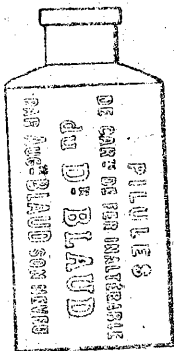 PILULES
DE CARB. DE FER INALTÉRABLE
du Dr. BLAUD
PAR Aug. BLAUD SON NEVEU